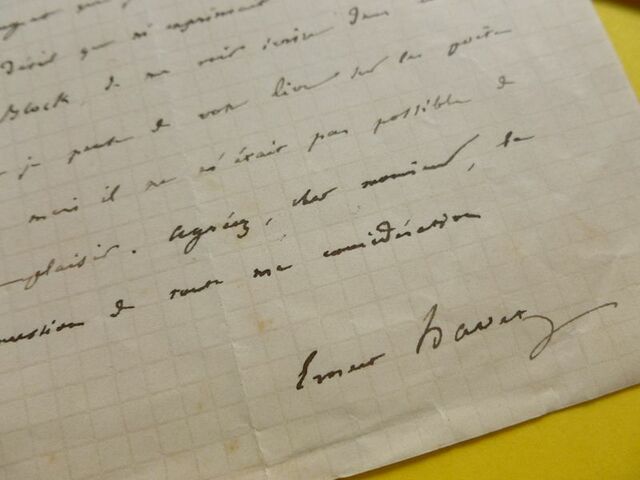 désir que m'exprimait
Block, de me voir écrire dans
je pense de votre livre sur les poètes
mais il ne m'était pas possible de
plaisir. Agréez, cher monsieur, la
de toute ma considération
Ernest Havet